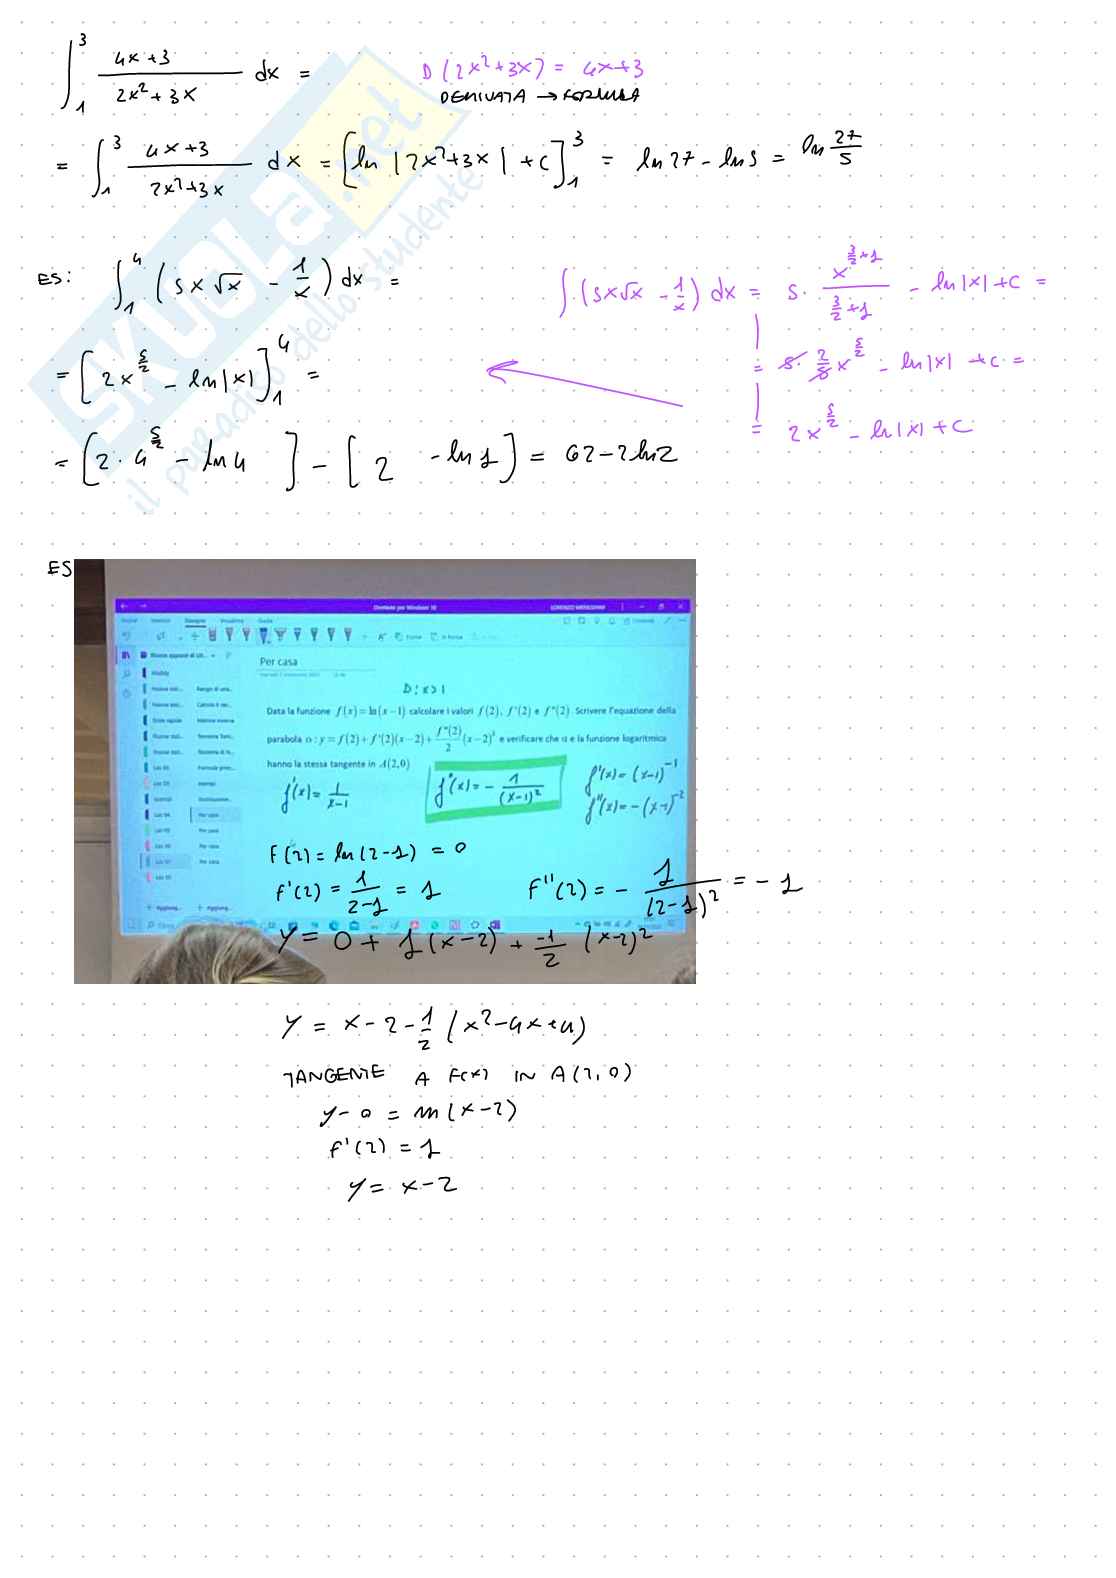 ∫₁³ (4x+3)/(2x²+3x) dx =
D(2x²+3x) = 4x+3
DERIVATA → FORMULA
= ∫₁³ (4x+3)/(2x²+3x) dx = [ln|2x²+3x| + c]₁³ = ln27 - ln5 = ln 27/5
ES: ∫₁⁴ (5x√x - 1/x) dx =
∫(5x√x - 1/x) dx = 5· x^(3/2+1)/(3/2+1) - ln|x| + c =
= 5· 2/5 x^(5/2) - ln|x| + c =
= 2x^(5/2) - ln|x| + c
= [2x^(5/2) - ln|x|]₁⁴ =
= [2·4^(5/2) - ln4] - [2 - ln1] = 62-2ln2
SKUOLA.net
il paradiso dello studente
ES
OneNote per Windows 10
Per casa
D: x>1
Data la funzione f(x)=ln(x-1) calcolare i valori f(2), f'(2) e f''(2). Scrivere l'equazione della
parabola α: y=f(2)+f'(2)(x-2)+f''(2)/2 (x-2)² e verificare che α e la funzione logaritmica
hanno la stessa tangente in A(2,0)
f'(x)= 1/(x-1)
f''(x)= - 1/(x-1)²
f'(x)= (x-1)⁻¹
f''(x)= -(x-1)⁻²
F(2) = ln(2-1) = 0
F'(2) = 1/(2-1) = 1
F''(2) = - 1/(2-1)² = -1
Y = 0 + 1(x-2) + -1/2 (x-2)²
Y = x-2-1/2 (x²-4x+4)
TANGENTE A F(x) IN A(2,0)
y-0 = m(x-2)
F'(2) = 1
Y = x-2